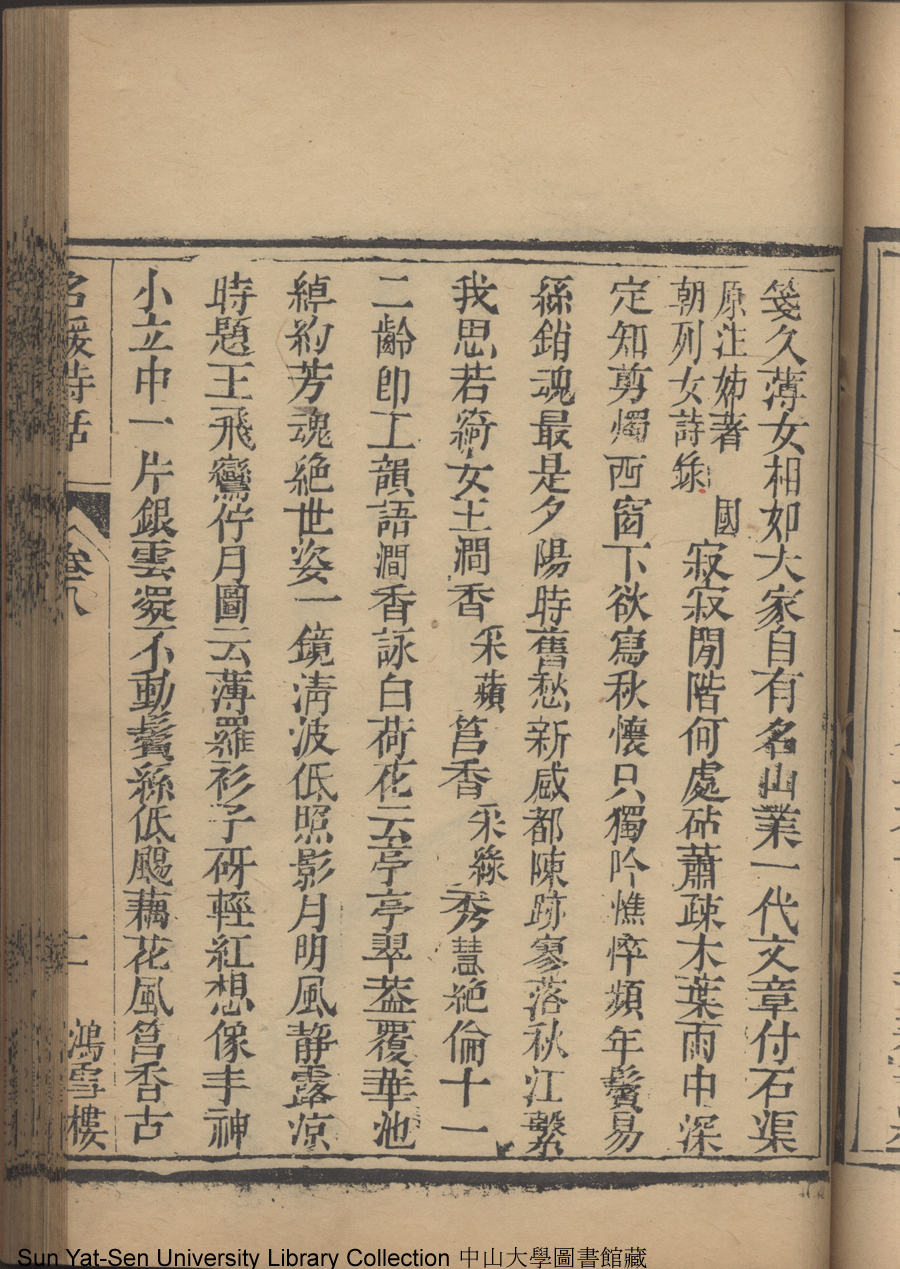 箋久薄女相如大家自有名山業一代文章付石渠
原注姊著國
朝列女詩錄
寂寂閒階何處砧蕭疎木葉雨中深
定知剪燭西窗下欲寫秋懷只獨吟憔悴頻年鬢易
絲銷魂最是夕陽時舊愁新感都陳跡寥落秋江繫
我思若綺女王澗香采蘋筥香采綠秀慧絕倫十一
二齡即工韻語澗香詠白荷花云亭亭翠葢覆華池
綽約芳魂絕世姿一鏡清波低照影月明風靜露涼
時題王飛鸞佇月圖云薄羅衫子砑輕紅想像丰神
小立中一片銀雲凝不動鬢絲低颺藕花風筥香古
名媛詩話
卷八
二
鴻雪樓
Sun Yat-Sen University Library Collection 中山大學圖書館藏